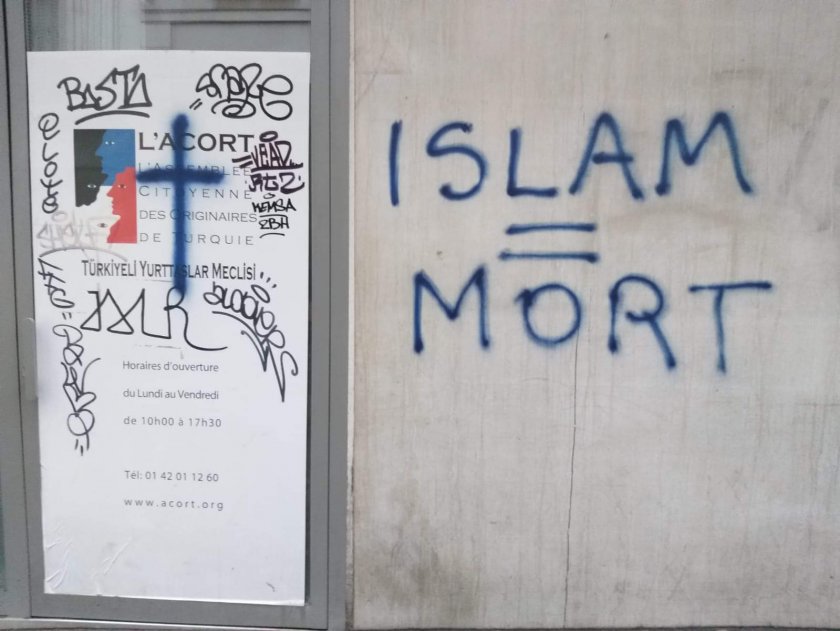 BASTA
L'ACORT
L'ASSEMBLÉE
CITOYENNE
DES ORIGINAIRES
DE TURQUIE
TÜRKİYELİ YURTTAŞLAR MECLİSİ
Horaires d'ouverture
du Lundi au Vendredi
de 10h00 à 17h30
Tél: 01 42 01 12 60
www.acort.org
ISLAM
=
MORT